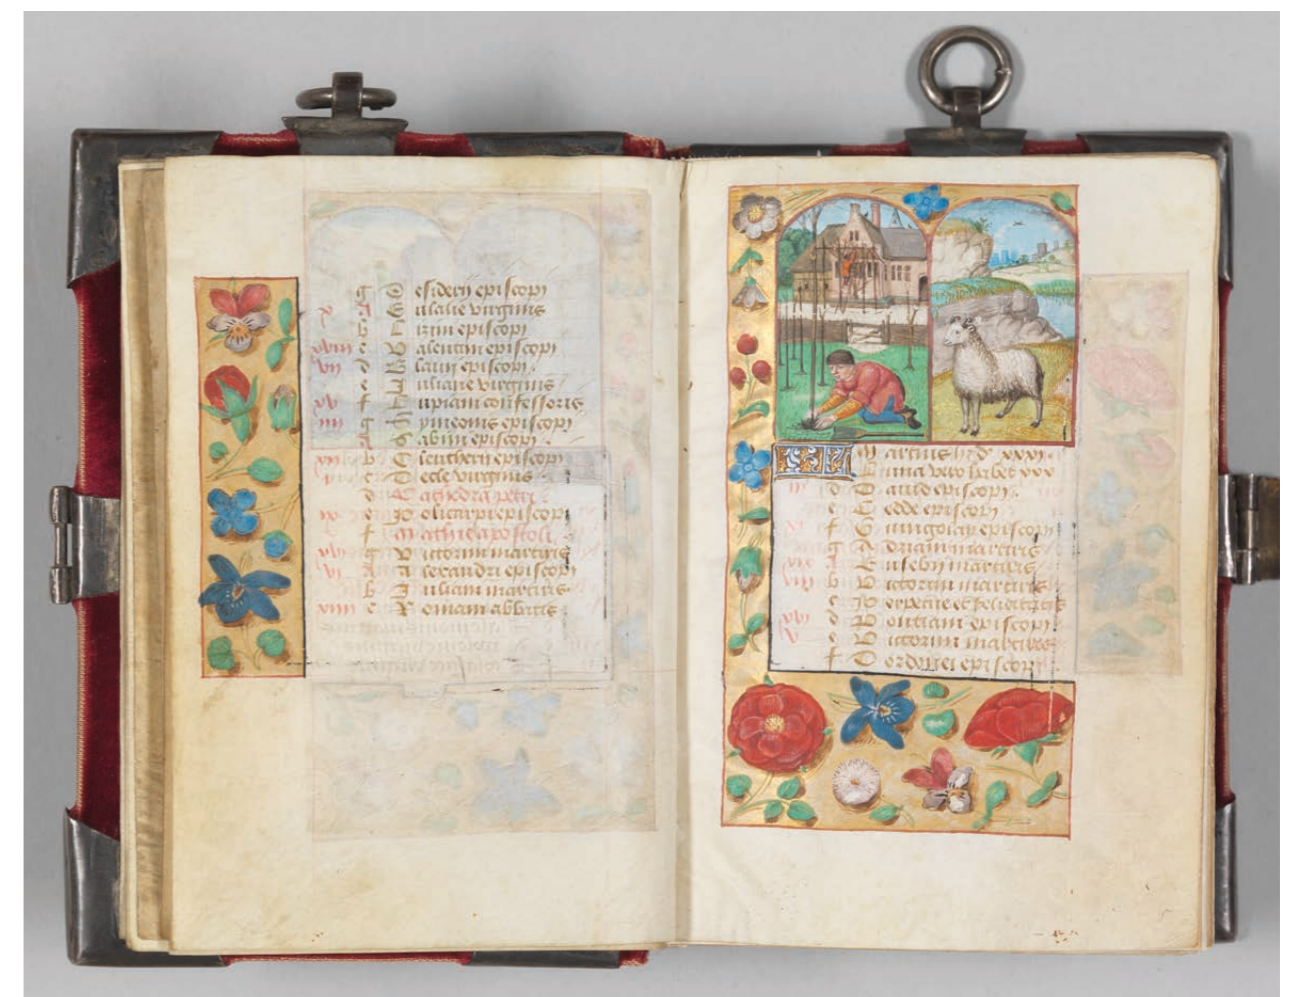 g D esiderii episcopi
x A E ulalie virginis
b episcopi
xviii c V alentini episcopi
vii d B lasii episcopi
e I uliane virginis
xv f confessoris
iiii g S ymeonis episcopi
A G abini episcopi
xii b E leutherii episcopi
c T ecle virginis
d C athedra petri
ix e P olicarpi episcopi
f M athie apostoli
xvii g V ictorini martiris
vi A A lexandri episcopi
b I uliani martiris
xiiii c R omani abbatis
M artius habet d xxxi
L una vero habet xxx
iii d D avid episcopi
e C edde episcopi
xi f G uingolay episcopi
g A driani martiris
xix A E usebii martiris
viii b V ictorini martiris
c P erpetue et felicitatis
xvi d P ontiani episcopi
v e V ictorini martiris
f episcopi